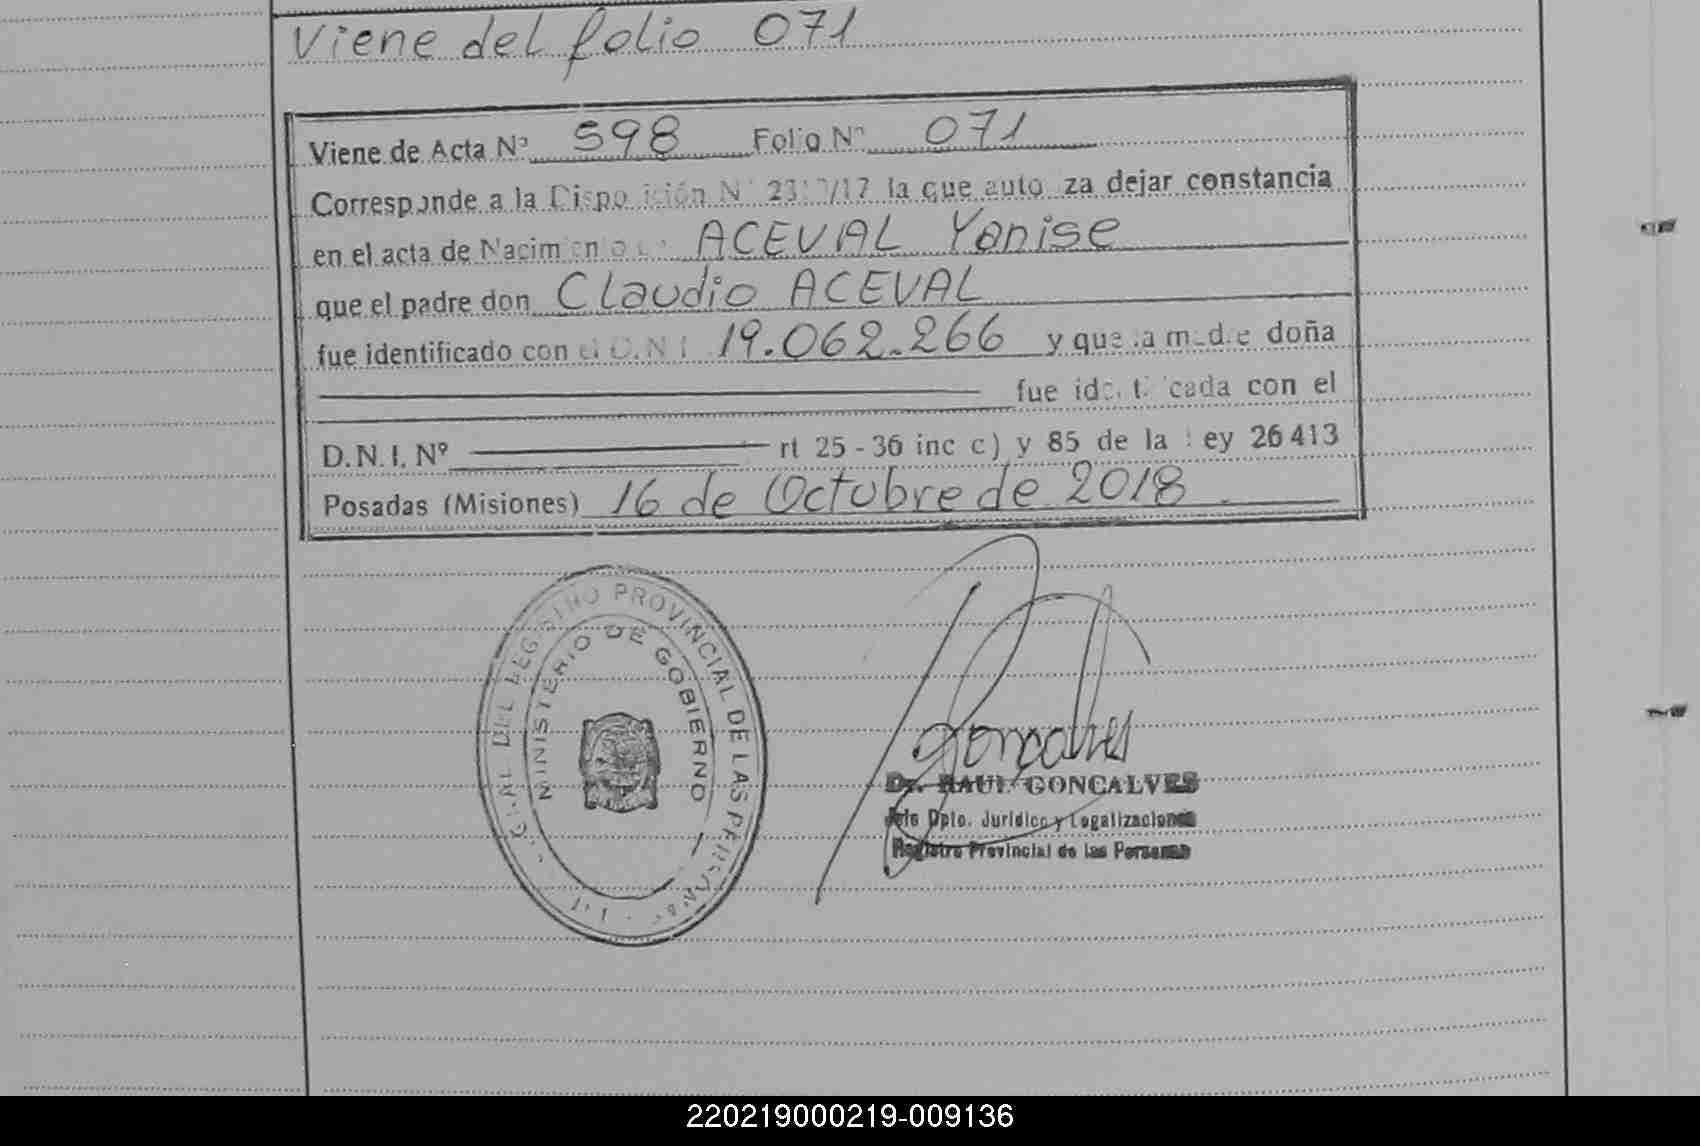 Viene del folio 071
Viene de Acta Nº 598 Folio Nº 071
Corresponde a la Disposición N 23 /17 la que autoriza dejar constancia
en el acta de Nacimiento de ACEVAL Yanise
que el padre don Claudio ACEVAL
fue identificado con el D.N.I 19.062.266 y que la madre doña
fue identificada con el
D.N.I. Nº rt 25 - 36 inc c) y 85 de la ley 26413
Posadas (Misiones) 16 de Octubre de 2018
DEL REGISTRO PROVINCIAL DE LAS PERSONAS
MINISTERIO DE GOBIERNO
Goncalves
Dr. RAUL GONCALVES
Jefe Dpto. Jurídico y Legalizaciones
Registro Provincial de las Personas
220219000219-009136